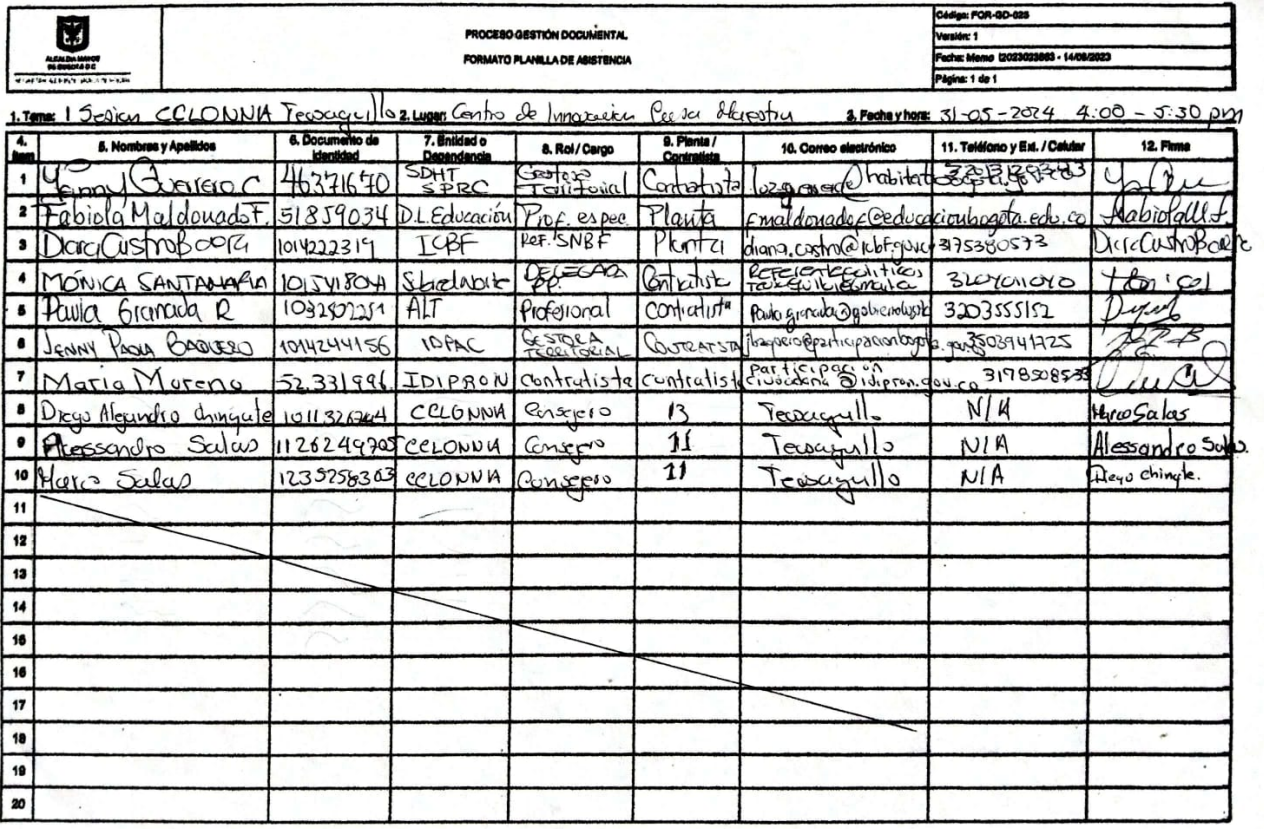 ALCALDÍA MAYOR
DE BOGOTÁ D.C.
PROCESO GESTIÓN DOCUMENTAL
FORMATO PLANILLA DE ASISTENCIA
Código: FOR-GD-025
Versión: 1
Fecha: Memo I2023023863 - 14/08/2023
Página: 1 de 1
1. Tema: I Sesion CCLONNIA Teusaquillo 2. Lugar: Centro de Innovación 3. Fecha y hora: 31-05-2024 4:00 - 5:30 pm
4. Item 5. Nombres y Apellidos 6. Documento de Identidad 7. Entidad o Dependencia 8. Rol / Cargo 9. Planta / Contratista 10. Correo electrónico 11. Teléfono y Ext. / Celular 12. Firma
1 Yenny Guerrero C 46371670 SDHT SPRC Gestora Territorial Contratista
2 Fabiola Maldonado F. 51859034 D.L.Educación Prof. espec Planta fmaldonadof@educacionbogota.edu.co Fabiola M.f.
3 1014222319 ICBF Ref. SNBF Planta diana.castro@icbf.gov.co 3175380573
4 MÓNICA SANTAMARÍA Subred Norte DELEGADA PP. Contratista
5 Paula Granada R ALT Profesional contratista 3203555152
6 JENNY PAOLA BAQUERO 1014244156 IDPAC GESTORA TERRITORIAL CONTRATISTA jbaquero@participacionbogota.gov 3503941725
7 Maria Moreno 52.331996 IDIPRON contratista contratista participacion ciudadana @idipron.gov.co 3178508533
8 Diego Alejandro chinguate CCLONNIA Consejero 13 Teusaquillo N/A Marco Salas
9 Alessandro Salas 1126249705 CCLONNIA Consejero 11 Teusaquillo N/A Alessandro Salas.
10 Marco Salas CCLONNIA Consejero 11 Teusaquillo N/A Diego
11
12
13
14
15
16
17
18
19
20